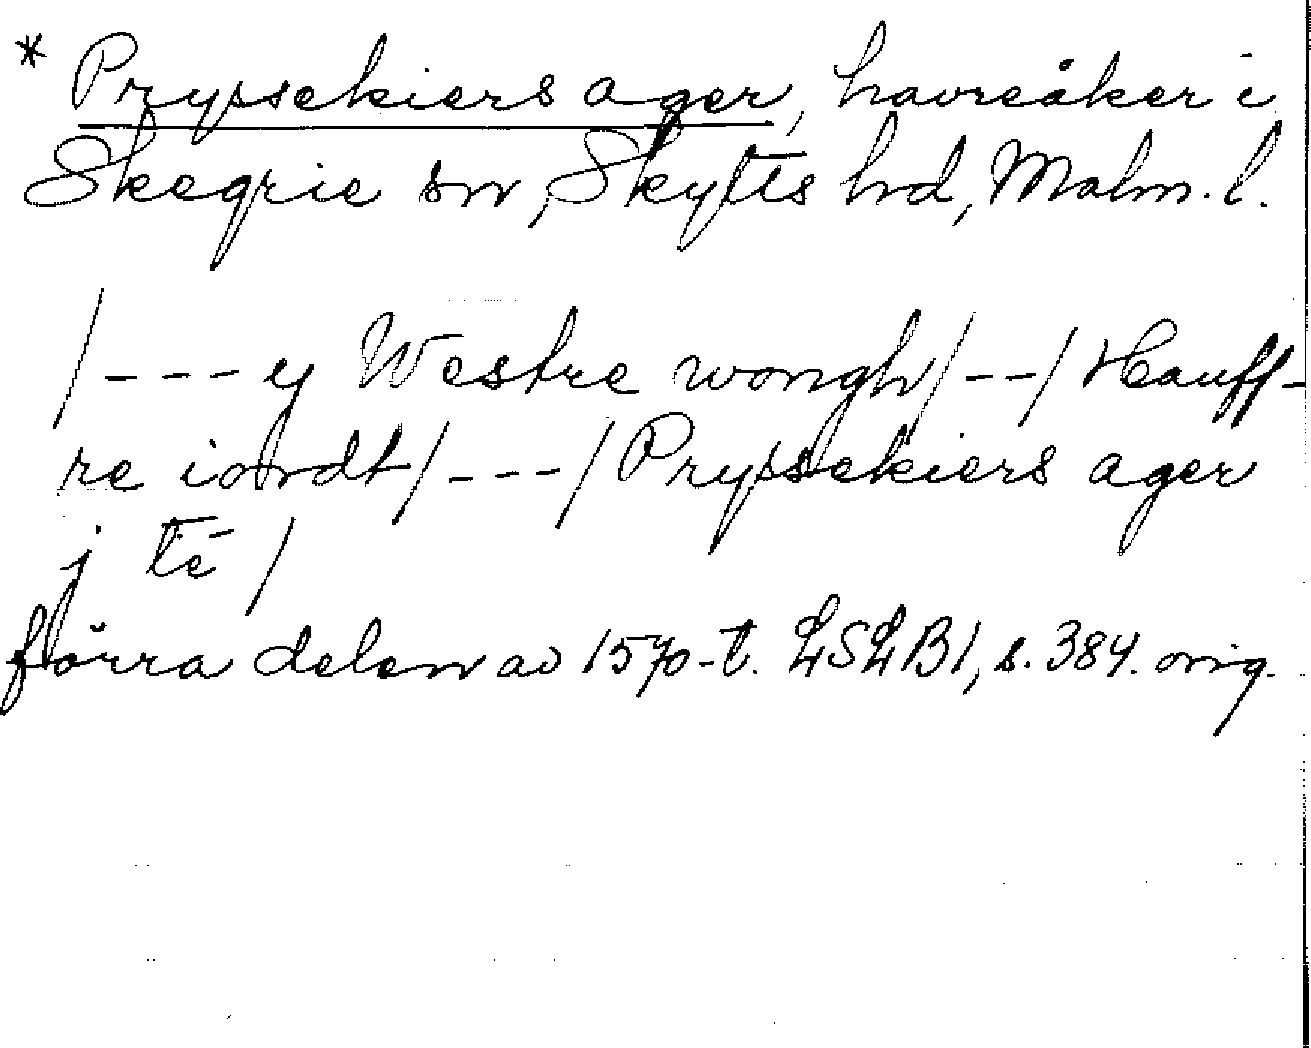 * Pryssekiers ager, havreåker i
Skegrie sn, Skytts hd, Malm. l.
/---y Westre wongh/--/Hauff-
re iordt/---/Pryssekiers ager
j tē /
förra delen av 1570-t. LSLB1, s. 384. orig.